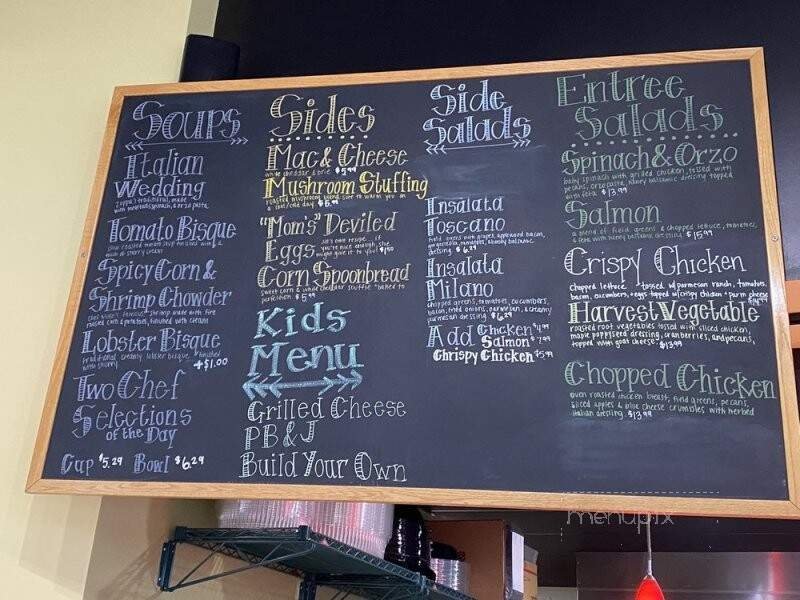 Soups
Italian
Wedding
traditional, made
Tomato Bisque
Spicy Corn &
Shrimp Chowder
roasted corn & potatoes, finished with cream
Lobster Bisque
traditional creamy lobster bisque finished
with sherry +$1.00
Two Chef
Selections
of the Day
Cup $5.29 Bowl $6.29
Sides
Mac & Cheese
white cheddar & brie $5.99
Mushroom Stuffing
roasted mushroom blend sure to warm you on
a cold day $5.99
"Mom's" Deviled
Eggs
might give it to you! $1.50
Corn Spoonbread
sweet corn & white cheddar souffle baked to
perfection $5.99
Kids
Menu
Grilled Cheese
PB & J
Build Your Own
Side
Salads
Insalata
Toscano
field greens with grapes, applewood bacon,
gorgonzola, tomatoes, & honey balsamic
dressing $6.29
Insalata
Milano
chopped greens, tomatoes, cucumbers,
bacon, fried onions, parmesan, & creamy
parmesan dressing $6.29
Add Chicken $4.99
Salmon $7.99
Chrispy Chicken $5.99
Entree
Salads
Spinach & Orzo
baby spinach with grilled chicken, tossed with
pecans, orzo pasta, honey balsamic dressing topped
with feta $13.99
Salmon
a blend of field greens & chopped lettuce, tomatoes,
& feta with honey balsamic dressing $15.99
Crispy Chicken
chopped lettuce tossed w/parmesan ranch, tomatoes,
bacon, cucumbers, eggs topped w/crispy chicken + parm cheese
Harvest Vegetable
roasted root vegetables tossed with sliced chicken,
maple poppyseed dressing, cranberries, and pecans,
topped with goat cheese $13.99
Chopped Chicken
oven roasted chicken breast, field greens, pecans,
sliced apples & blue cheese crumbles with herbed
italian dressing $13.99
menupix